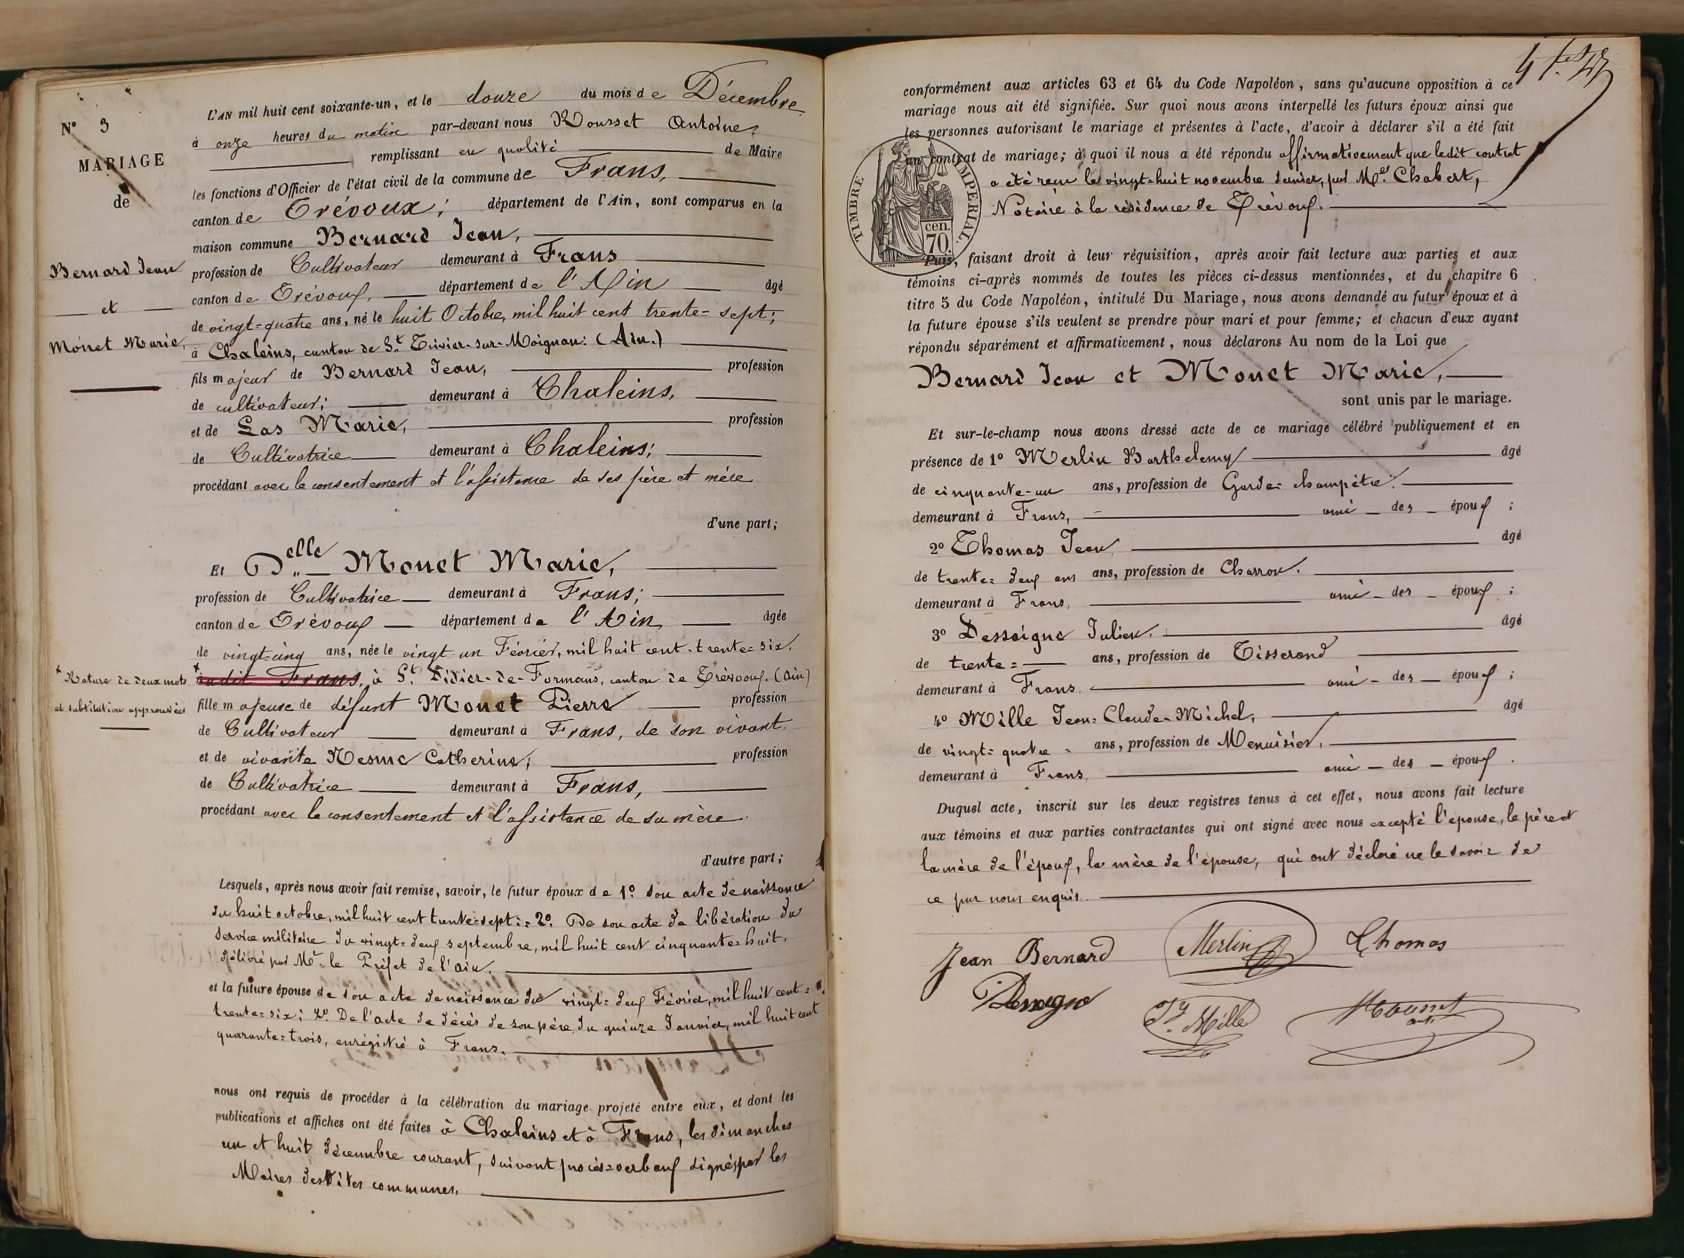 N° 3
MARIAGE
de
Bernard Jean
et
Monet Marie,
+ Rature de deux mots
et substitution approuvées
L'AN mil huit cent soixante-un, et le douze du mois de Décembre
à onze heures du matin par-devant nous Rousset Antoine,
remplissant en qualité de Maire
les fonctions d'Officier de l'état civil de la commune de Frans,
canton de Trévoux; département de l'Ain, sont comparus en la
maison commune Bernard Jean,
profession de Cultivateur demeurant à Frans
canton de Trévoux, département de l'Ain âgé
de vingt-quatre ans, né le huit Octobre, mil huit cent trente-sept;
à Chaleins, canton de St. Trivier-sur-Moignan: (Ain.)
fils majeur de Bernard Jean, profession
de cultivateur; demeurant à Chaleins,
et de Las Marie, profession
de Cultivatrice demeurant à Chaleins;
procédant avec le consentement et l'assistance de ses père et mère
d'une part;
Et Delle Monet Marie,
profession de Cultivatrice demeurant à Frans;
canton de Trévoux département de l'Ain, âgée
de vingt-cinq ans, née le vingt un Février, mil huit cent-trente-six.
+ audit Frans, à St. Didier-de-Formans, canton de Trévoux. (Ain)
fille majeure de défunt Monet Pierre profession
de Cultivateur demeurant à Frans, de son vivant.
et de vivante Nesme Catherine; profession
de Cultivatrice demeurant à Frans,
procédant avec le consentement et l'assistance de sa mère.
d'autre part;
Lesquels, après nous avoir fait remise, savoir, le futur époux de 1° son acte de naissance
du huit octobre, mil huit cent trente-sept: = 2° De son acte de libération du
service militaire du vingt-deux septembre, mil huit cent cinquante-huit,
délivré par Mr le Préfet de l'ain.
et la future épouse de son acte de naissance du vingt-deux Février, mil huit cent =
trente-six; 2° De l'acte de décès de son père du quinze Janvier, mil huit cent
quarante-trois, enrégistré à Frans.
nous ont requis de procéder à la célébration du mariage projeté entre eux, et dont les
publications et affiches ont été faites à Chaleins et à Frans, les dimanches
un et huit décembre courant, suivant procès-verbaux signés par les
Maires desdites communes.
conformément aux articles 63 et 64 du Code Napoléon, sans qu'aucune opposition à ce
mariage nous ait été signifiée. Sur quoi nous avons interpellé les futurs époux ainsi que
les personnes autorisant le mariage et présentes à l'acte, d'avoir à déclarer s'il a été fait
un contrat de mariage; à quoi il nous a été répondu affirmativement que ledit contrat
a été reçu le vingt-huit novembre dernier, par Me Chabert,
Notaire à la résidence de Trévoux.
TIMBRE IMPERIAL.
cen.
70.
Puis, faisant droit à leur réquisition, après avoir fait lecture aux parties et aux
témoins ci-après nommés de toutes les pièces ci-dessus mentionnées, et du chapitre 6
titre 5 du Code Napoléon, intitulé Du Mariage, nous avons demandé au futur époux et à
la future épouse s'ils veulent se prendre pour mari et pour femme; et chacun d'eux ayant
répondu séparément et affirmativement, nous déclarons Au nom de la Loi que
Bernard Jean et Monet Marie,
sont unis par le mariage.
Et sur-le-champ nous avons dressé acte de ce mariage célébré publiquement et en
présence de 1° Merlin Barthelemy âgé
de cinquante-un ans, profession de Garde-champêtre.
demeurant à Frans, ami des époux;
2° Thomas Jean âgé
de trente-deux ans ans, profession de Charron.
demeurant à Frans, ami des époux;
3° Dessaigne Julien. âgé
de trente= ans, profession de Tisserand
demeurant à Frans ami des époux;
4° Mille Jean-Claude-Michel, âgé
de vingt-quatre ans, profession de Menuisier,
demeurant à Frans ami des époux.
Duquel acte, inscrit sur les deux registres tenus à cet effet, nous avons fait lecture
aux témoins et aux parties contractantes qui ont signé avec nous excepté l'épouse, le père et
la mère de l'époux, la mère de l'épouse, qui ont déclaré ne le savoir de
ce par nous enquis.
Jean Bernard Merlin Thomas
Mille